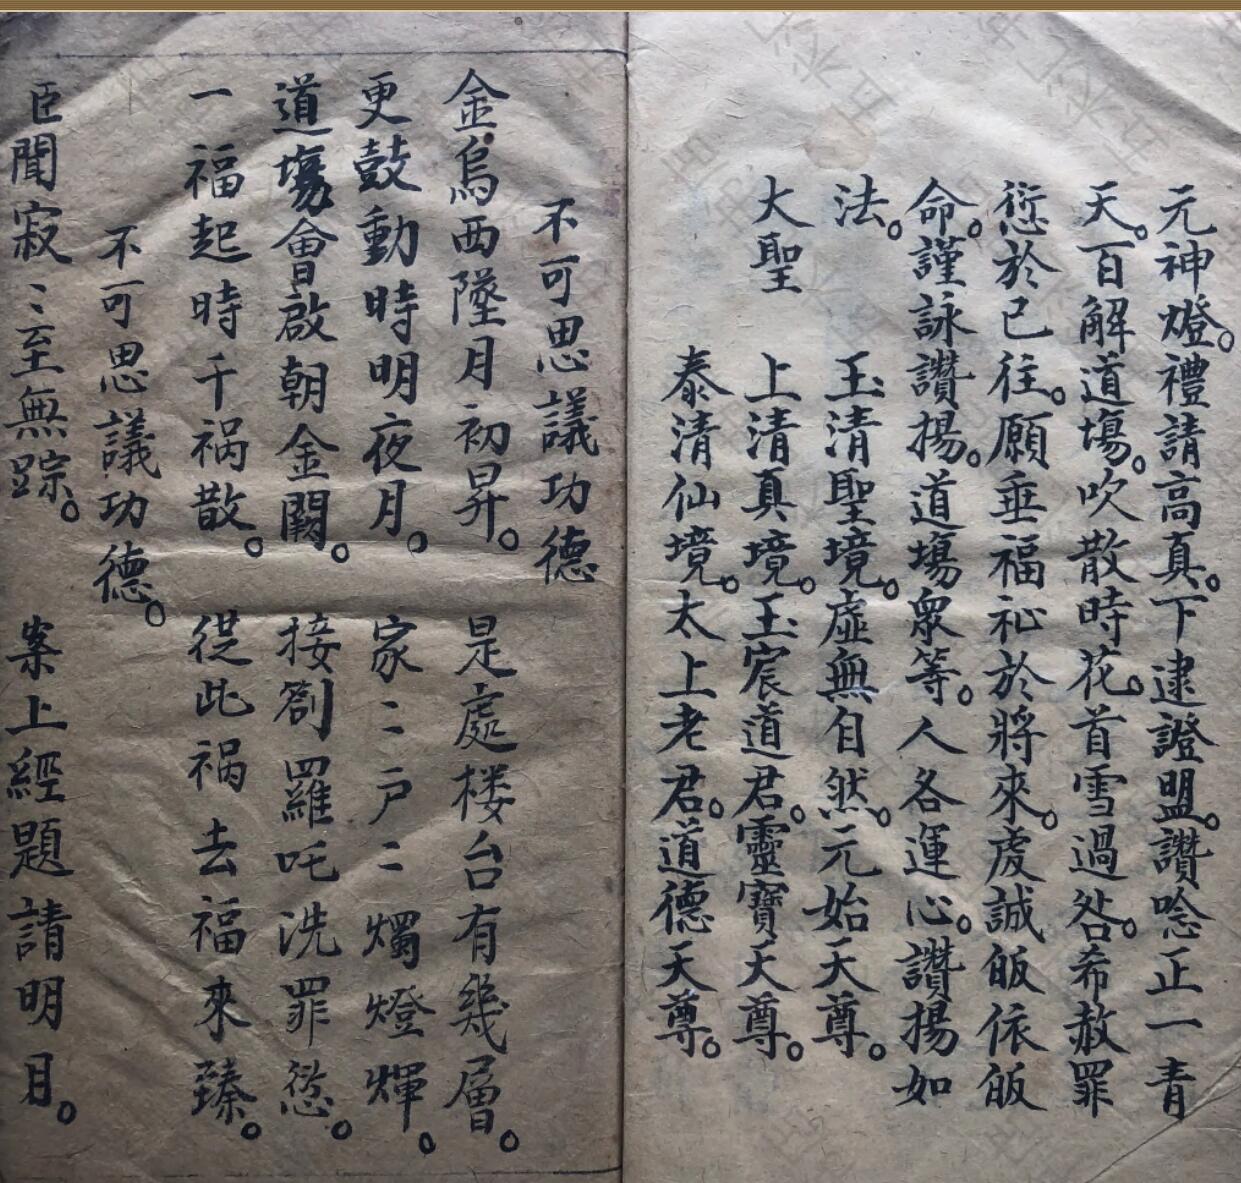 元神燈。禮請高真。下逮證盟。讚唸正一青
天。百解道場。吹散時花。首雪過咎。希赦罪
愆於已往。願垂福祉於將來。虔誠皈依皈
命。謹詠讚揚。道場眾等。人各運心。讚揚如
法。
玉清聖境。虛無自然。元始天尊。
大聖 上清真境。玉宸道君。靈寶天尊。
泰清仙境。太上老君。道德天尊。
不可思議功德
金烏西墜月初昇。是處楼台有幾層。
更鼓動時明夜月。家〻戶〻燭燈輝。
道場會啟朝金闕。接劄羅吒洗罪愆。
一福起時千祸散。從此祸去福來臻。
不可思議功德。
臣聞寂〻至無踪。案上經題請明目。